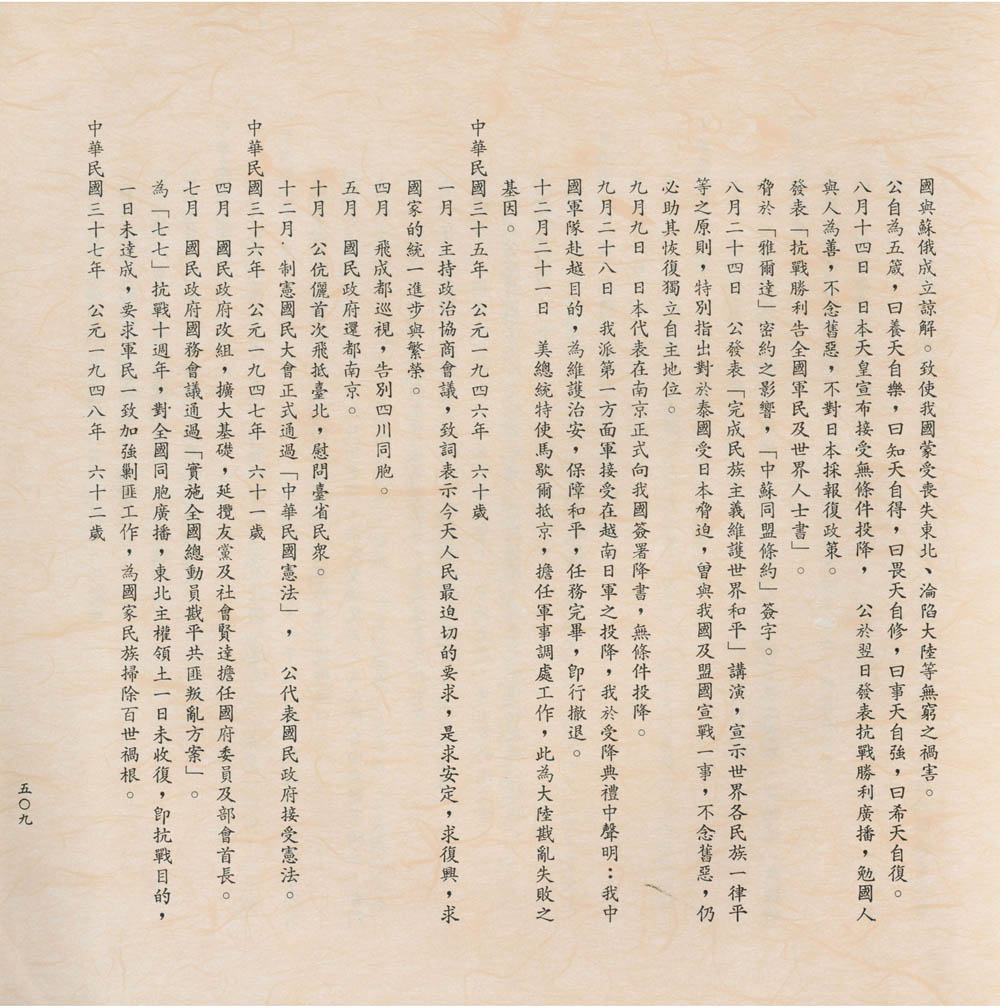 國與蘇俄成立諒解。致使我國蒙受喪失東北、淪陷大陸等無窮之禍害。
公自為五箴，曰養天自樂，曰知天自得，曰畏天自修，曰事天自強，曰希天自復。
八月十四日　日本天皇宣布接受無條件投降，　公於翌日發表抗戰勝利廣播，勉國人
與人為善，不念舊惡，不對日本採報復政策。
發表「抗戰勝利告全國軍民及世界人士書」。
脅於「雅爾達」密約之影響，「中蘇同盟條約」簽字。
八月二十四日　公發表「完成民族主義維護世界和平」講演，宣示世界各民族一律平
等之原則，特別指出對於泰國受日本脅迫，曾與我國及盟國宣戰一事，不念舊惡，仍
必助其恢復獨立自主地位。
九月九日　日本代表在南京正式向我國簽署降書，無條件投降。
九月二十八日　我派第一方面軍接受在越南日軍之投降，我於受降典禮中聲明：我中
國軍隊赴越目的，為維護治安，保障和平，任務完畢，即行撤退。
十二月二十一日　美總統特使馬歇爾抵京，擔任軍事調處工作，此為大陸戡亂失敗之
基因。
中華民國三十五年　公元一九四六年　六十歲
一月　主持政治協商會議，致詞表示今天人民最迫切的要求，是求安定，求復興，求
國家的統一進步與繁榮。
四月　飛成都巡視，告別四川同胞。
五月　國民政府還都南京。
十月　公伉儷首次飛抵臺北，慰問臺省民眾。
十二月．制憲國民大會正式通過「中華民國憲法」，　公代表國民政府接受憲法。
中華民國三十六年　公元一九四七年　六十一歲
四月　國民政府改組，擴大基礎，延攬友黨及社會賢達擔任國府委員及部會首長。
七月　國民政府國務會議通過「實施全國總動員戡平共匪叛亂方案」。
為「七七」抗戰十週年，對全國同胞廣播，東北主權領土一日未收復，即抗戰目的，
一日未達成，要求軍民一致加強剿匪工作，為國家民族掃除百世禍根。
中華民國三十七年　公元一九四八年　六十二歲
五〇九